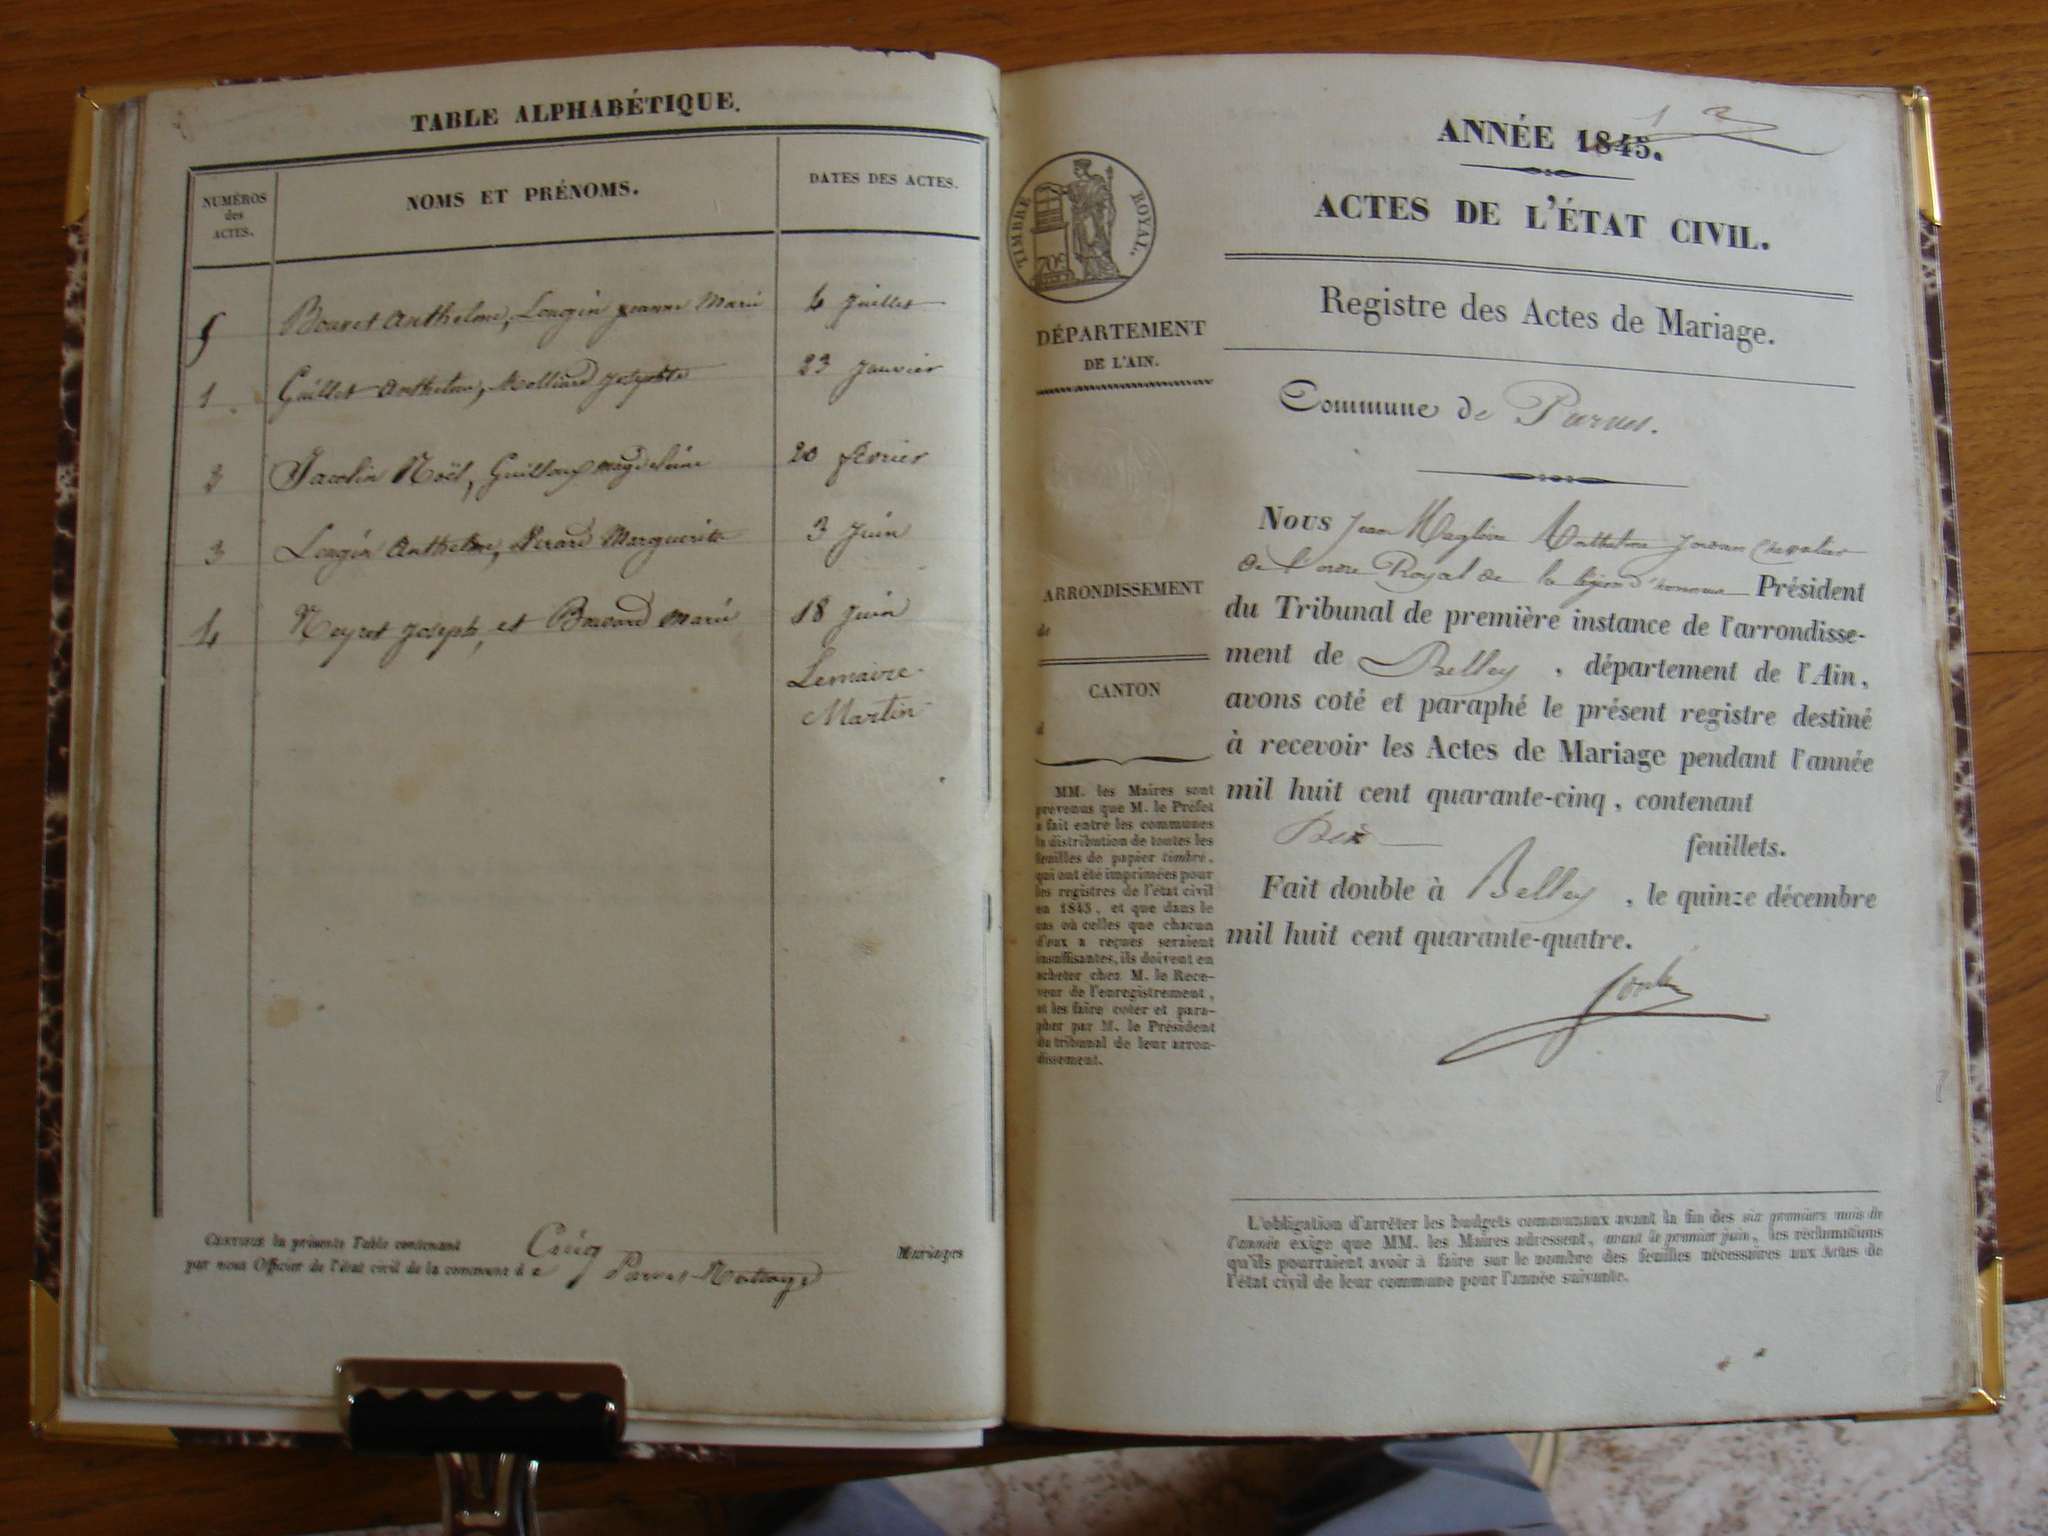 TABLE ALPHABÉTIQUE.
NUMÉROS
des
ACTES.
NOMS ET PRÉNOMS.
DATES DES ACTES.
5 Bouvet Anthelme, Longin Jeanne Marie 4 Juillet
1 Guillot Anthelme, Molliard Josephte 23 Janvier
2 Jacolin Noël, Guilloux Magdeleine 20 février
3 Longin Anthelme, Perard Marguerite 3 Juin
4 Neyret Joseph, et Bouvard Marie 18 Juin
Lemaire
Martin
CERTIFIÉ la présente Table contenant Cinq Mariages
par nous Officier de l'état civil de la commune de Parves
1
ANNÉE 1845.
ACTES DE L'ÉTAT CIVIL.
Registre des Actes de Mariage.
TIMBRE ROYAL.
70c
DÉPARTEMENT
DE L'AIN.
Commune de Parves.
ARRONDISSEMENT
de
CANTON
d
MM. les Maires sont
prévenus que M. le Préfet
a fait entre les communes
la distribution de toutes les
feuilles de papier timbré,
qui ont été imprimées pour
les registres de l'état civil
en 1845, et que dans le
cas où celles que chacun
d'eux a reçues seraient
insuffisantes, ils doivent en
acheter chez M. le Rece-
veur de l'enregistrement,
et les faire coter et para-
pher par M. le Président
du tribunal de leur arron-
dissement.
Nous Jean Anthelme Chevalier
de l'ordre Royal de la légion d'honneur Président
du Tribunal de première instance de l'arrondisse-
ment de Belley, département de l'Ain,
avons coté et paraphé le présent registre destiné
à recevoir les Actes de Mariage pendant l'année
mil huit cent quarante-cinq, contenant
feuillets.
Fait double à Belley, le quinze décembre
mil huit cent quarante-quatre.
L'obligation d'arrêter les budgets communaux avant la fin des six premiers mois de
l'année exige que MM. les Maires adressent, avant le premier juin, les réclamations
qu'ils pourraient avoir à faire sur le nombre des feuilles nécessaires aux Actes de
l'état civil de leur commune pour l'année suivante.